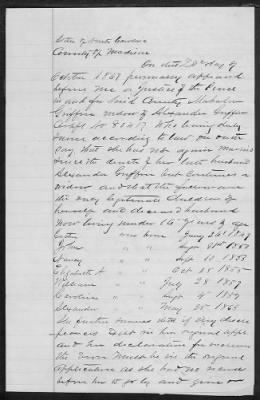 State of North Carolina
County of Madison
On this 28th day of
October 1867 personally appeared
before me a Justice of the Peace
in and for said County Malinda
Griffin widow of Alexander Griffin
who being duly
sworn according to law on oath
say that she has not again married
since the death of her late husband
Alexander Griffin but continues a
widow and that the
are very legitimate children of
herself and deceased husband
Now living under 16 years of age
was born Jany 26 1849
John " " Sept 1851
Nancy " " Sept 10 1853
Elizabeth A " " Oct 15 1855
William " " July 28 1857
Caroline " " Sept 4 1859
Alexander " " May 25 1863
She further
in her original appl
and her declaration for increase
the error must be in the original
application as she had no
before her to go by and gave